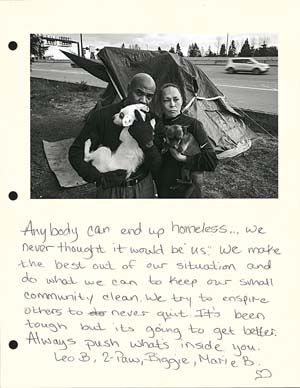 Anybody can end up homeless... we
never thought it would be us. We make
the best out of our situation and
do what we can to keep our small
community clean. We try to enspire
others to never quit. It's been
tough but its going to get better.
Always push what's inside you.
Leo B, 2-Paw, Biggie, Marie B.